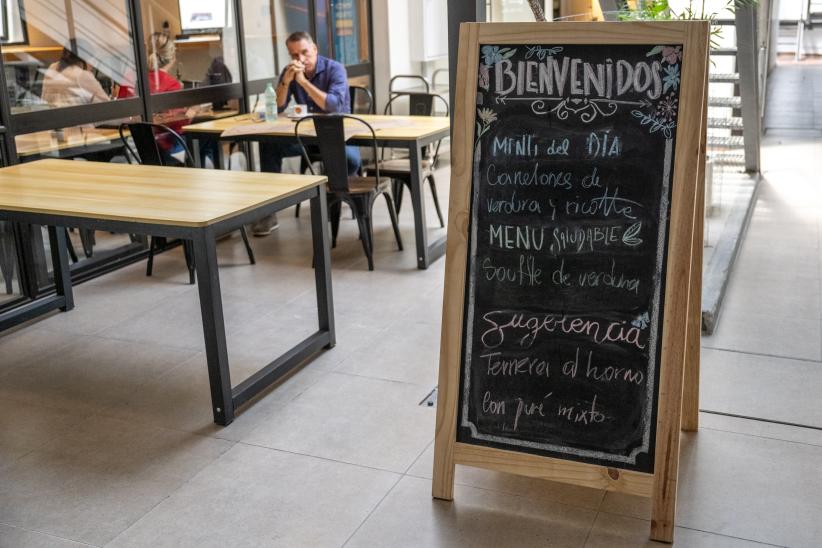 BIENVENIDOS
MENÚ del DÍA
Canelones de
verdura y ricotta
MENU SALUDABLE
Souffle de verdura
Sugerencia
Ternera al horno
con puré mixto